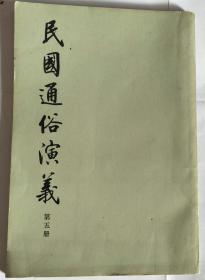 民國通俗演義
第五册